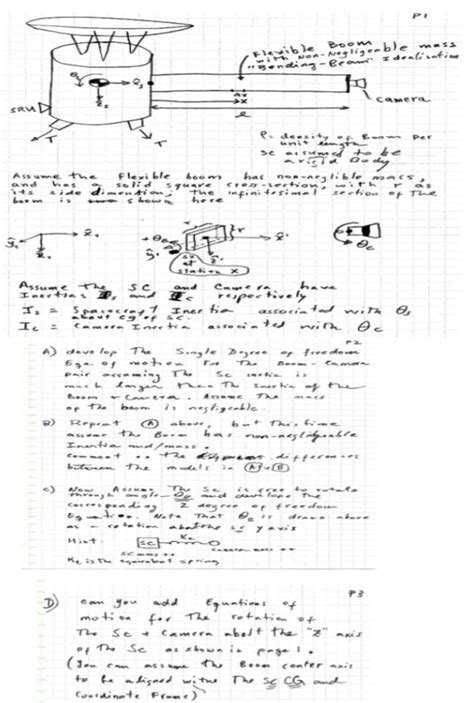 P1
Flexible Boom
with Non-Negligeable mass
"Bending-Beam" Idealization
θs
x̂s
ẑs
dx
x
camera
SRU
l
T
T
ρ = density of Boom per
unit length
SC assumed to be
a rigid Body
Assume the flexible boom has non-neglible mass,
and has a solid square cross-section, with r as
its side dimention, the infinitesimal section of the
boom is shown here
ŷs
x̂s
ẑs
+θc
ŷ'
r
x̂'
dx
at
station x
θc
Assume the SC and Camera have
Inertias Is and Ic respectively
Is = Spacecraft Inertia associated with θs
about cg of SC.
Ic = Camera Inertia associated with θc
P2
A) develop The Single Degree of freedom
Eqn. of motion for The Boom-Camera
pair assuming The Sc inertia is
much larger than The Inertia of the
Boom + Camera. Assume The mass
of the boom is negligeable.
B) Repeat A above, but This time
assume the Boom has non-negligeable
Inertia and/mass.
comment on the differences
between the models in A + B
C) Now Assume The Sc is free to rotate
through angle θs and develope the
corresponding 2 degree of freedom
Equation. Note that θc is drawn above
as a rotation about the sc y axis
Hint.
SC
Ke
SC mass
camera mass
Ke is the equivalent spring
P3
D) can you add Equations of
motion for The rotation of
The Sc + Camera about the "Z" axis
of the SC as shown in page 1.
(you can assume the Boom center axis
to be aligned with The SC CG and
Coordinate Frame)